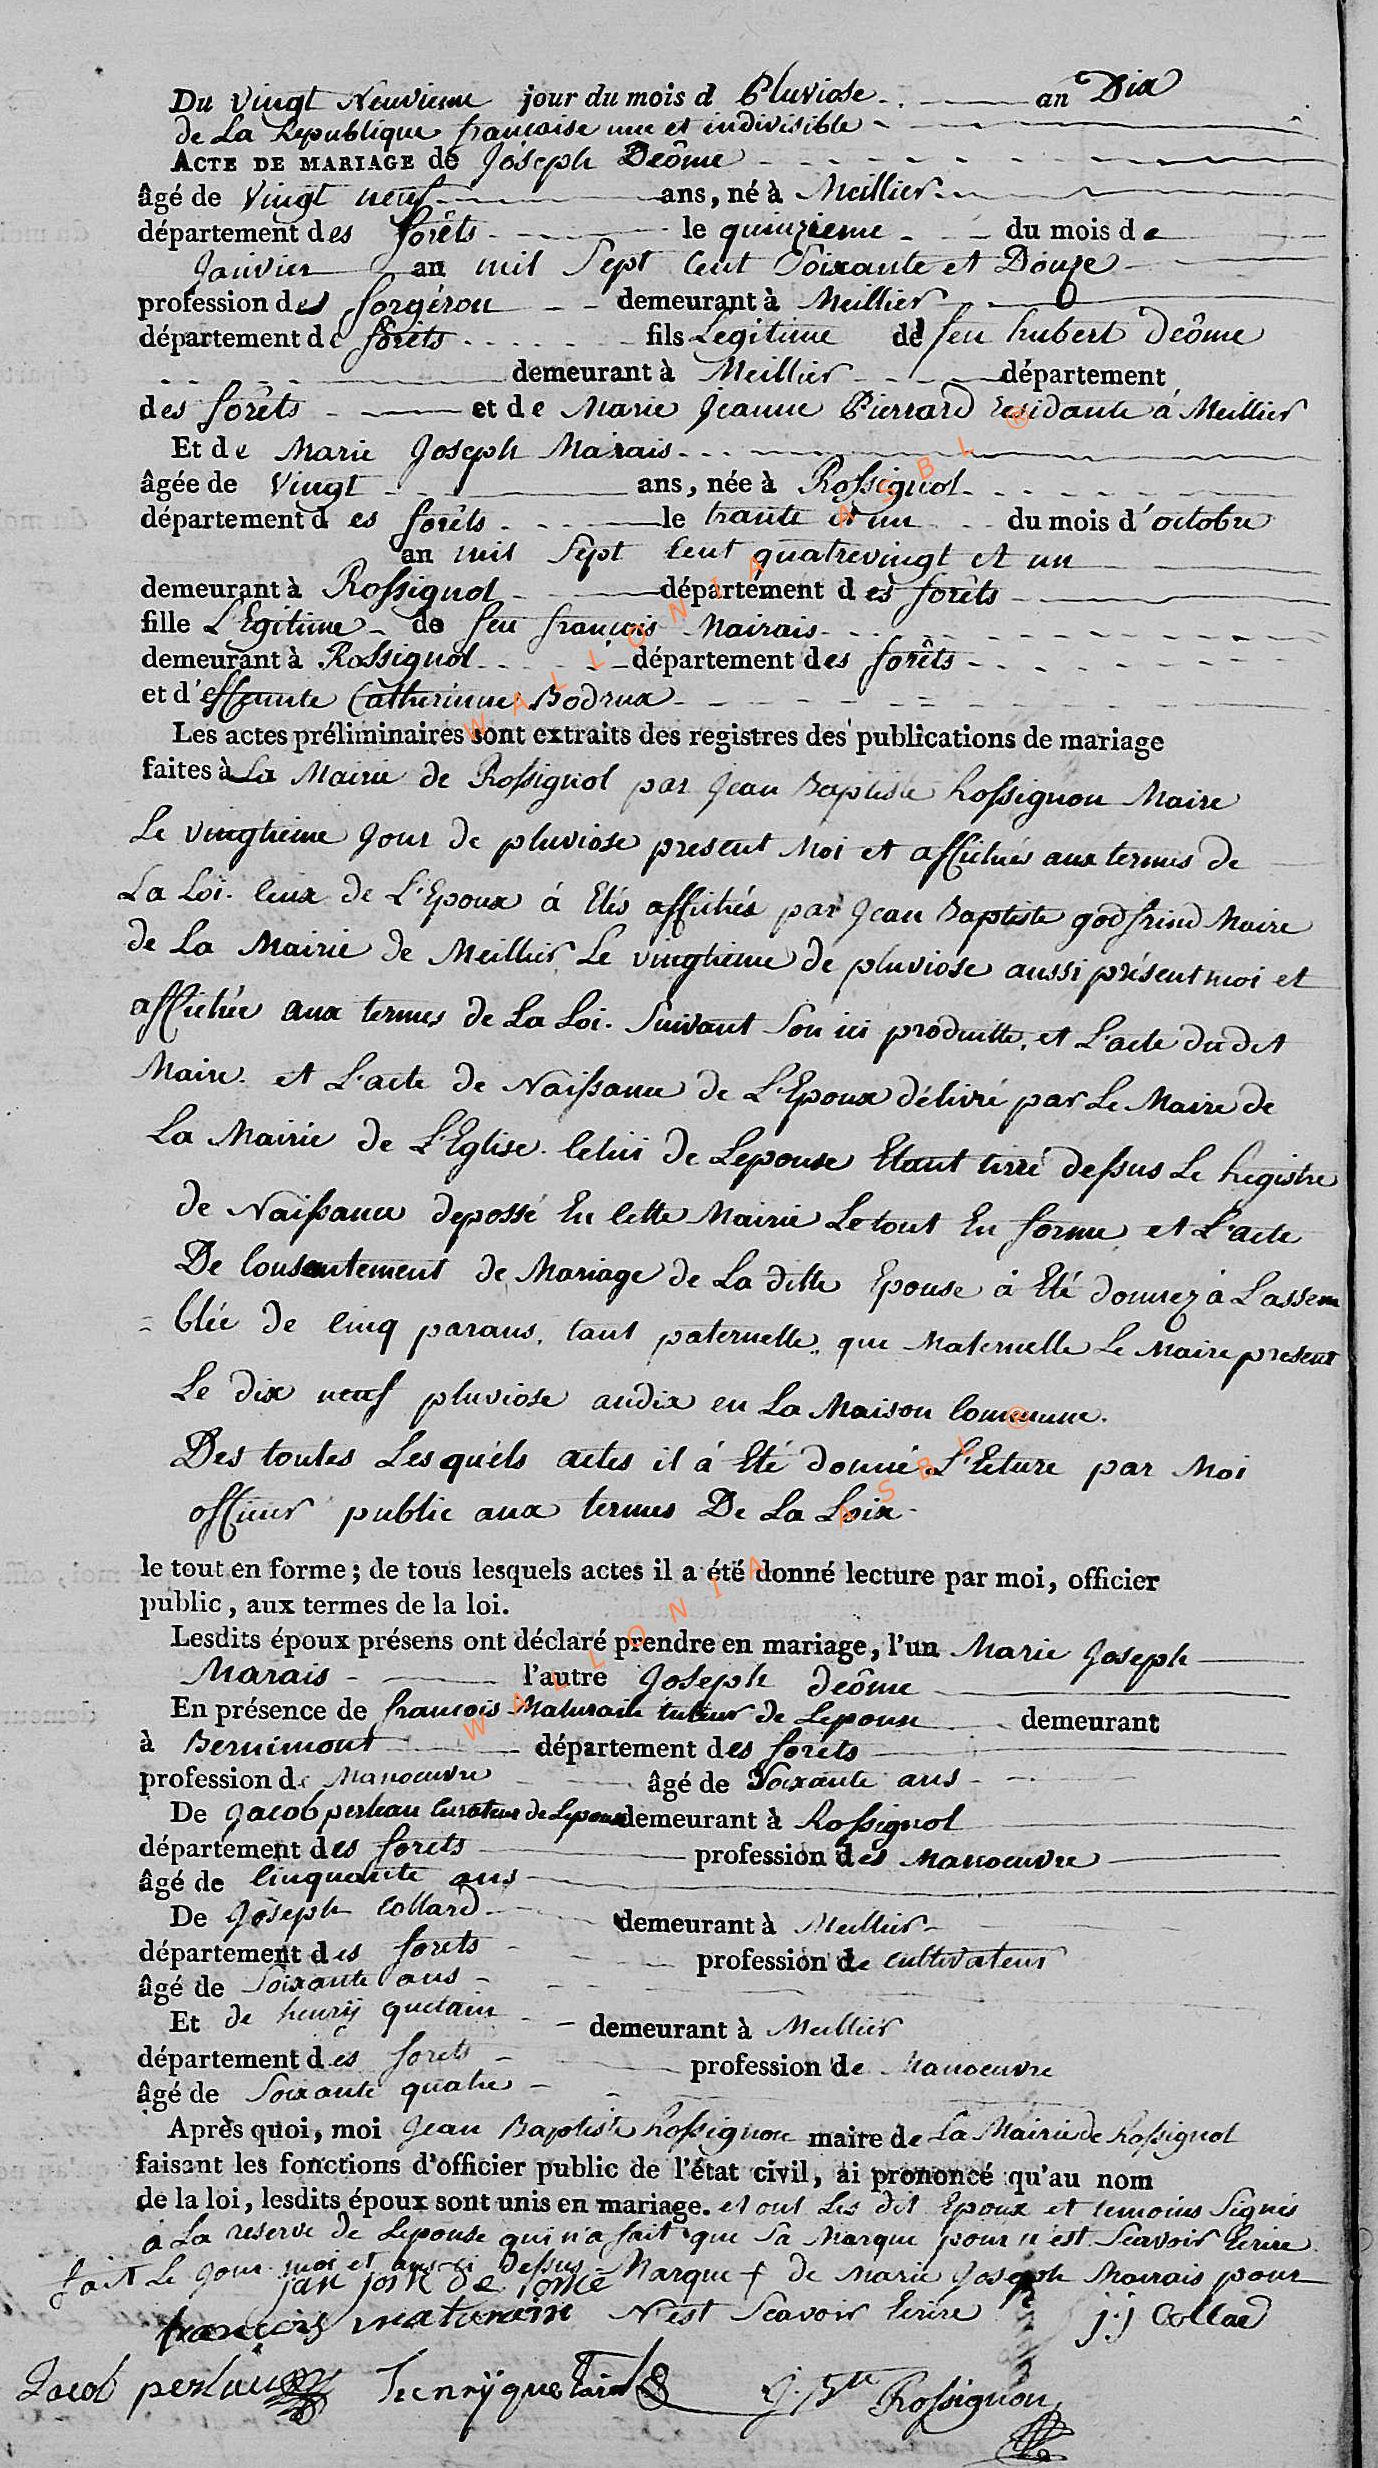 Du vingt Neuvieme jour du mois d Pluviose an Dix
de La Republique francaise une et indivisible
ACTE DE MARIAGE de Joseph Deôme
âgé de vingt neuf ans, né à Meillier
département des forêts le quinzieme du mois de
Janvier an mil Sept Cent Soixante et Douze
profession des forgérou demeurant à Meillier
département de forêts fils Legitime de feu hubert Deôme
demeurant à Meillier département
des forêts et de Marie Jeanne Pierrard residante á Meillier
Et de Marie Joseph Marais
âgée de Vingt ans, née à Rossignol
département d es forêts le trante et un du mois d'octobre
an mil Sept Cent quatrevingt et un
demeurant à Rossignol département d es forêts
fille L'Egitime de feu françois Mairais
demeurant à Rossignol département des forêts
et d'effeunte Catherinne Bodrux
Les actes préliminaires sont extraits des registres des publications de mariage
faites à La Mairie de Rossignol par Jean Baptiste Rossignon Maire
Le vingtieme Jour de pluviose present Moi et affichés aux termes de
La Loi. Ceux de L'Epoux á Etés affichés par Jean Baptiste godfrind Maire
de La Mairie de Meillier Le vingtieme de pluviose aussi présent moi et
affichée aux termes de La Loi. Suivant Son ici produitte, et L'acte dudit
Maire. et L'acte de Naissance de L'Epoux délivré par Le Maire de
La Mairie de L'Eglise. Celui de Lepouse Etant tirré dessus Le Registre
de Naissance depossé En Cette Mairie Le tout En forme et L'acte
De Consentement de Mariage de La ditte Epouse à Eté donnez à Lassem
= blée de Cinq parans, tant paternelle, que Maternelle Le Maire present
Le dix neuf pluviose andix en La Maison Commune.
Des toutes Les quéls actes il á Eté donné L'Ecture par Moi
officier public aux termes De La Loix
le tout en forme ; de tous lesquels actes il a été donné lecture par moi, officier
public, aux termes de la loi.
Lesdits époux présens ont déclaré prendre en mariage, l'un Marie Joseph
Marais l'autre Joseph deôme
En présence de françois Maturain tuteur de Lepouse demeurant
à Bernimont département des forets
profession de Manoeuvre âgé de Soixante ans
De Jacob perleau Curateur de Lepouse demeurant à Rossignol
département des forets profession des Manoeuvre
âgé de Cinquante ans
De Joseph Collard demeurant à Meillier
département des forets profession de cultivateur
âgé de Soixante ans
Et de henrij quetain demeurant à Meillier
département des forets profession de Manoeuvre
âgé de Soixante quatre
Après quoi, moi Jean Baptiste Rossignon maire de La Mairie de Rossignol
faisant les fonctions d'officier public de l'état civil, ai prononcé qu'au nom
de la loi, lesdits époux sont unis en mariage. et ont Les dit Epoux et temoins Signés
a La reserve de Lepouse qui n'a fait que Sa Marque pour n'est Scavoir Ecrire
fait Le Jour moi et an ci dessus Marque + de Marie Joseph Marais pour
jan josh de iome
N'est Scavoir Ecrire
françois maturain j.j Collad
Jacob perleau henrÿ quetain J. Bte Rossignon
WALLONIA ASBL ®
WALLONIA ASBL ®